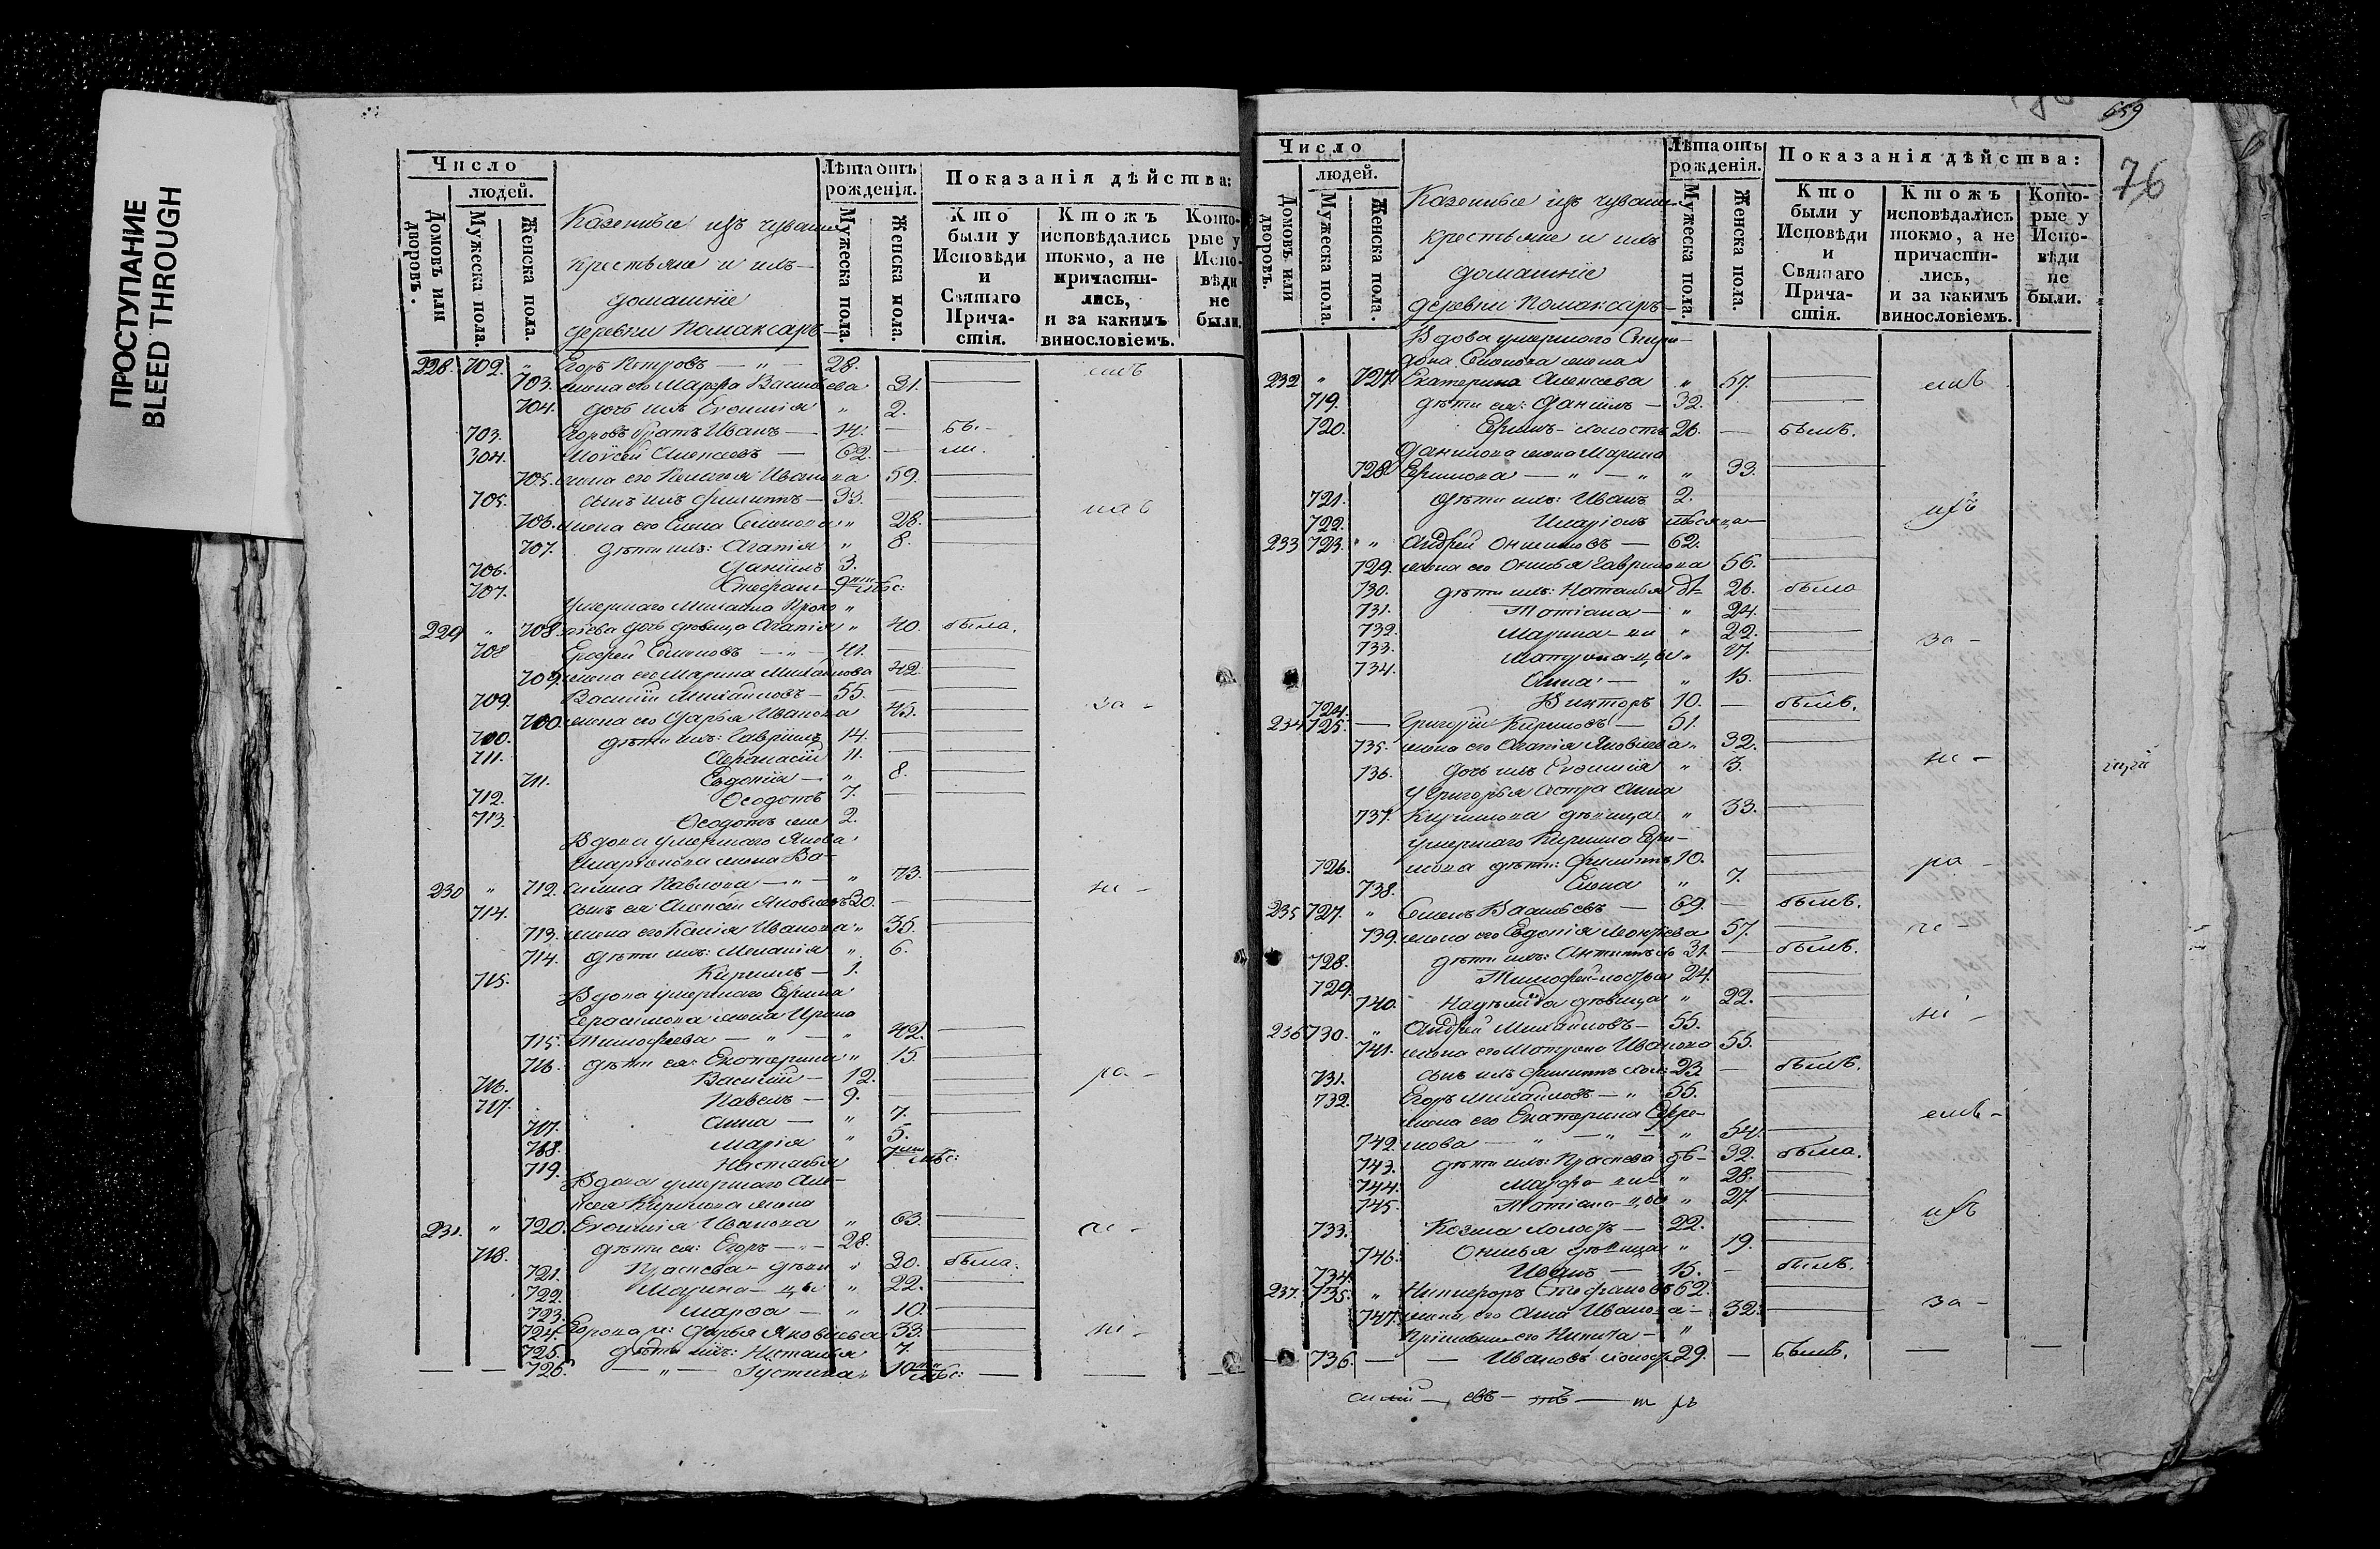 ПРОСТУПАНИЕ
BLEED THROUGH
Число
людей.
Домовъ или дворовъ.
Мужеска пола.
Женска пола.
Казенные изъ чуваш
крестьяне и ихъ
домашніе
деревни Комаксаръ
Лѣта отъ рожденія.
Мужеска пола.
Женска пола.
Показанія дѣйства:
Кто были у Исповѣди и Святаго Причастія.
Ктожъ исповѣдались токмо, а не причастились, и за какимъ винословіемъ.
Которые у Исповѣди не были.
228. 702. " Егоръ Петровъ — " — 28.
703. жена его Марфа Васильева 31.
704. дочь ихъ Евѳимія " 2.
703. Егоровъ братъ Иванъ — 14. — бы-
304. Моѵсей Алексеевъ — 62. — ли.
705. жена его Пелагея Иванова 59.
705. сынъ ихъ Филиппъ — 33. —
706. жена его Елена Семенова " 28.
707. дѣти ихъ: Агапія " 8.
706. Даніилъ 3.
707. Стефанъ мѣс:
Умершаго Михаила Проко "
229 " 708. піева дочь дѣвица Агапія " 40. была.
708 Семеновъ — " — 41. —
709. жена его Марина Михайлова 42.
709. Василій Михайловъ — 55. —
700. жена его Дарья Иванова 45. за -
700. дѣти ихъ: Гавріилъ 14. —
711. Афанасій 11.
711. Евдокія — " 8.
712. Ѳеодотъ 7. —
713. Ѳеодотъ же 2.
Вдова умершаго Якова
жена Ва-
230 " 712. силиса Павлова — " — " 73. ни -
714. сынъ ея: Алексѣй Яковлевъ 30. —
713. жена его Ксенія Иванова " 35.
714. дѣти ихъ: Меланія " 6.
715. Кириллъ — 1.
Вдова умершаго Ефима
Герасимова жена Ирина
715. Тимофеева — " — " 42.
716. дѣти ея: Екатерина " 15.
716. Василій — 12. — ра -
717. Павелъ — 9. —
717. Анна — " 7.
718. Марія " 5.
719. Настасья 7 мѣс:
Вдова умершаго Але-
ксея Кирилова жена
231. " 720. Евѳимія Иванова " 63.
718. дѣти ея: Егоръ — " — 28.
721. Праскева — дѣви " 30. была.
722. Марина — цы " 22.
723. Марѳа — " 10.
724. Егорова ж: Дарья Яковлева 33. ні -
725. дѣти ихъ: Наталья 7.
726. — " — Іустина " 10 мѣс:
659
76
Число
людей.
Домовъ или дворовъ.
Мужеска пола.
Женска пола.
Казенные изъ чуваш
крестьяне и ихъ
домашніе
деревни Комаксаръ
Лѣта отъ рожденія.
Мужеска пола.
Женска пола.
Показанія дѣйства:
Кто были у Исповѣди и Святаго Причастія.
Ктожъ исповѣдались токмо, а не причастились, и за какимъ винословіемъ.
Которые у Исповѣди не были.
Вдова умершаго Спири-
дона Семенова жена
232 " 727. Екатерина Алексеева " 57.
719. дѣти ея: Даніилъ — 32.
720. Ефимъ — холостъ 26. — былъ.
Данилова жена Марина
728. Ефимова — " — " " 33.
721. дѣти ихъ: Иванъ 2.
722. Иларіонъ мѣсяца
233 723. " " Андрей Онисимовъ — 62.
729. жена его Онисья Гаврилова 56.
730. дѣти ихъ: Наталья дѣ 26. была
731. Татіана — " 24.
732. Марина — ви " 22. за -
733. Матрона — цы " 17.
734. Анна — " 15.
724. Викторъ 10. — былъ.
234 725. — Григорій Кириловъ — 51.
735. жена его Агапія Яковлева " 32.
736. дочь ихъ Евѳимія " 3. ни -
У Григорья сестра Анна
737. Кирилова дѣвица " 33.
умершаго Кирилла Ефи-
726. мова дѣти: Филиппъ 10. ра -
738. Елена " 7.
235 727. " Семенъ Васильевъ — 69. — былъ.
739. жена его Евдокія Мокѣева 57.
728. дѣти ихъ: Антипъ 31. — былъ.
729. Тимофей холостъ 24.
740. Надежда дѣвица " 22.
236 730. " Андрей Михайловъ — 55. ні -
741. жена его Матрона Иванова 55.
731. сынъ ихъ Филиппъ хол: 23. — былъ.
732. Егоръ Михайловъ — " 55.
жена его Екатерина Ефре-
742. мова — " — " — " 54.
743. дѣти ихъ: Праскева дѣ- 32. была.
744. Марфа — ви " 28.
745. Татіана — цы " 27.
733. Козма холостъ — 22.
746. Онисья дѣвица " 19.
734. Иванъ — 15. — былъ.
237. 735. " Никифоръ Стефановъ 62.
747. жена его Анна Иванова — 32. за -
его Никита — "
736. — — Ивановъ холост. 29. — былъ.